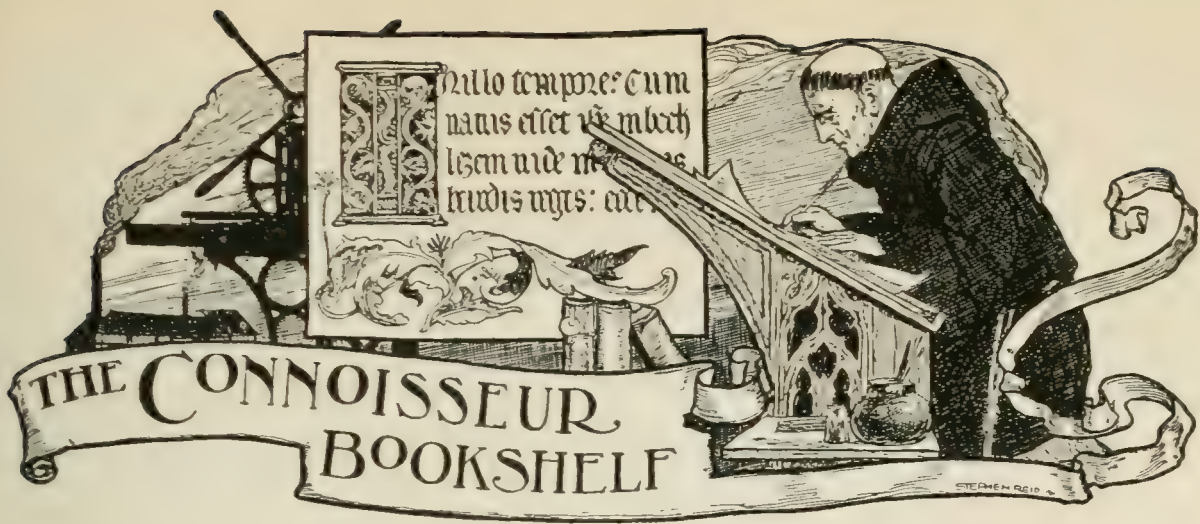 IN illo tempore: Cum
natus esset in beth
lezem iude in
regis:
THE CONNOISSEUR
BOOKSHELF
STEPHEN REID